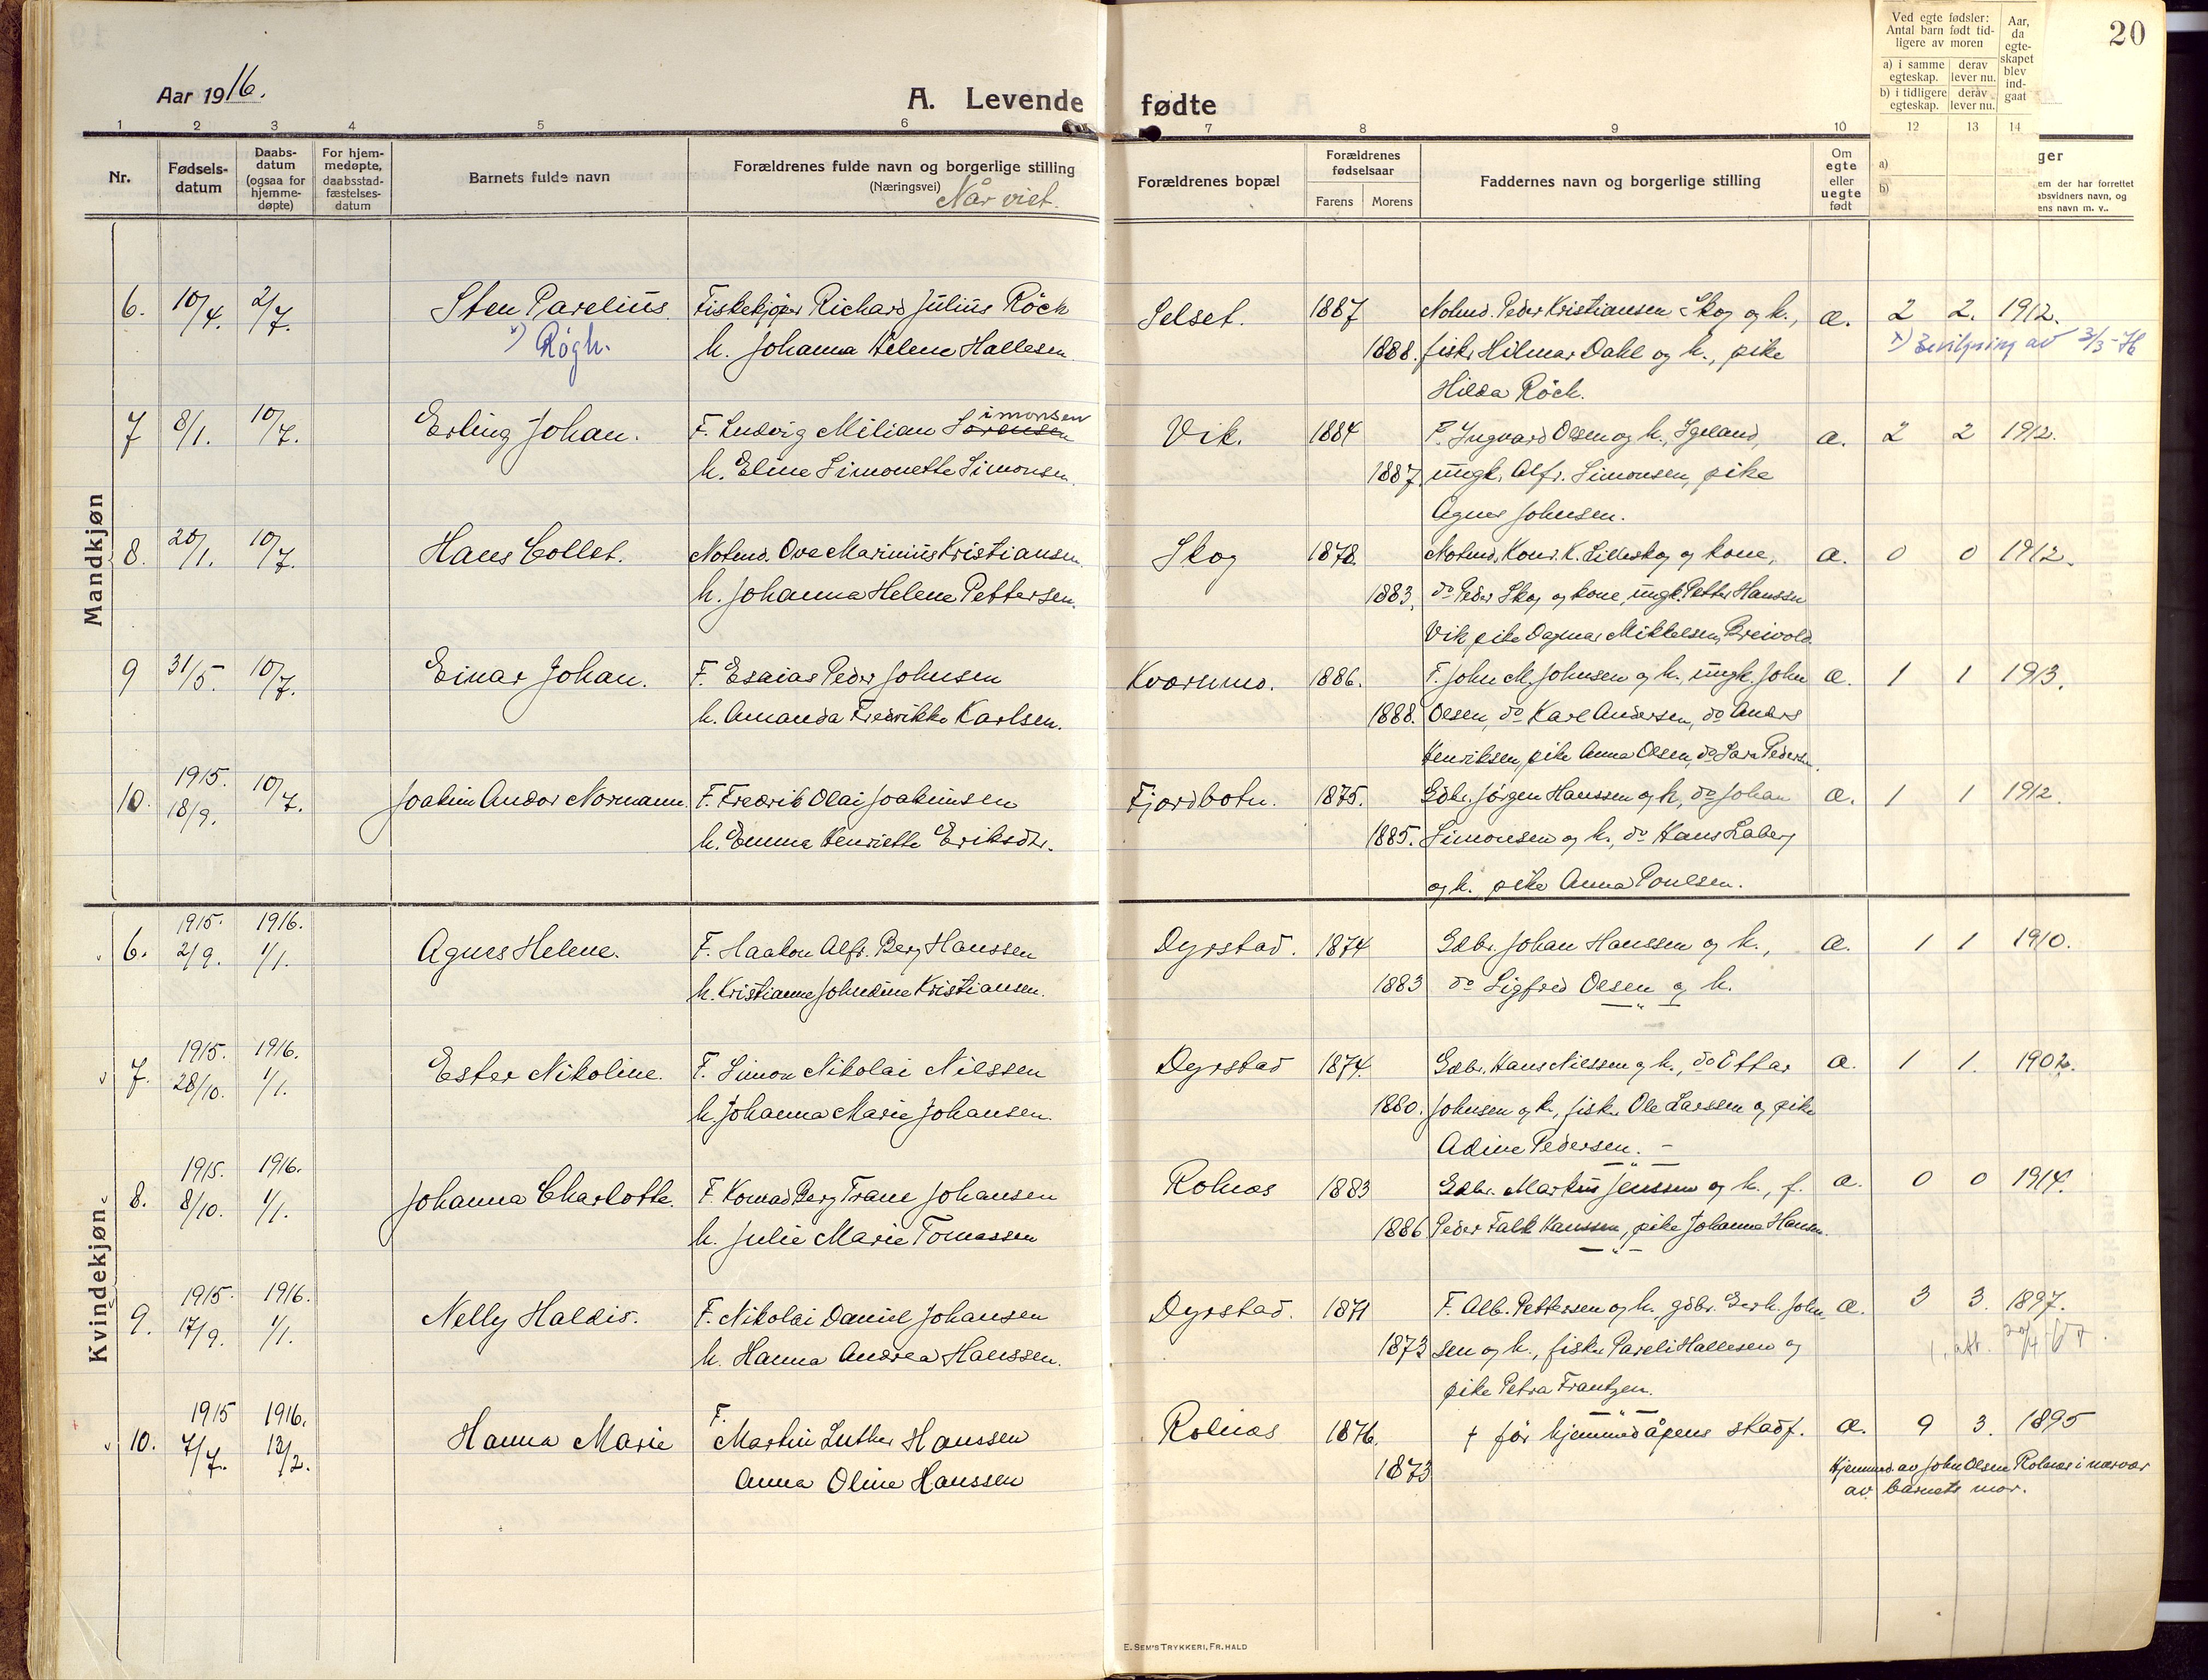 20
Ved egte fødsler:
Antal barn født tid-
ligere av moren
Aar,
da
egte-
skapet
blev
ind-
gaat
a) i samme egteskap.
derav lever nu.
b) i tidligere egteskap.
derav lever nu.
Aar 1916.
A. Levende fødte
1 2 3 4 5 6 7 8 9 10 12 13 14
Nr.
Fødsels-
datum
Daabs-
datum
(ogsaa for
hjemme-
døpte)
For hjem-
medøpte,
daabsstad-
fæstelses-
datum
Barnets fulde navn
Forældrenes fulde navn og borgerlige stilling
(Næringsvei)
Når viet.
Forældrenes bopæl
Forældrenes
fødselsaar
Farens Morens
Faddernes navn og borgerlige stilling
Om
egte
eller
uegte
født
a)
b)
ger
em der har forrettet
absvidners navn, og
ens navn m. v..
Mandkjøn
6. 10/4. 2/7. Sten Parelius. Fiskekjøper Richard Julius Röck Selset. 1887 Notmd. Peder Kristiansen Skog og h., æ. 2 2. 1912.
x) Røgh. h. Johanna Helene Hallesen 1888. fisk. Hilmar Dahl og h., pike x) Bevilgning av 3/3-76
Hilda Röck.
7 8/1. 10/7. Erling Johan. F. Ludvig Milian Sørensen imonsen Vik. 1884 F. Ingvard Olsen og h., Igeland, æ. 2 2 1912.
h. Eline Simonette Simonsen. 1887. ungk. Alfr. Simonsen, pike
Agnes Johnsen.
8. 20/1. 10/7. Hans Collet. Notmd. Ove Marinius Kristiansen. Skog 1878. Notmd. Konr. K. Lilleskog og kone, æ. 0 0 1912.
h. Johanna Helene Pettersen. 1883. do Peder Skog og kone, ungk. Petter Hanssen
Vik pike Dagmar Mikkelsen, Breivold.
9 31/5. 10/7. Einar Johan. F. Esaias Peder Johnsen Kværnmo. 1886. F. John M. Johnsen og h., ungk. John æ. 1 1 1913.
h. Amanda Fredrikke Karlsen. 1888. Olsen, do Karl Andersen, do Anders
Henriksen, pike Anna Olsen, do Sara Pedersen.
10. 1915. 18/9. 10/7. Joakim Andor Normann. F. Fredrik Olai Joakimsen Fjordbotn. 1875. Gdbr. Jørgen Hanssen og h, do Johan æ. 1 1 1912.
h. Emma Henriette Eriksdtr. 1885. Simonsen og h., do Hans Laberg
og h. pike Anna Poulsen.
Kvindekjøn.
6. 1915. 2/9. 1916. 1/1. Agnes Helene. F. Haakon Alfr. Berg Hanssen Dyrstad. 1874 Gdbr. Johan Hanssen og h., æ. 1 1 1910.
h. Kristianne Johndine Kristiansen. 1883 do Sigfred Olsen og h.
7. 1915. 28/10. 1916. 1/1. Ester Nikoline. F. Simon Nikolai Nilssen Dyrstad 1874. Gdbr. Hans Nilssen og h., do Ottar æ. 1 1. 1902.
h. Johanna Marie Johansen. 1880. Johnsen og h., fisk. Ole Larssen og pike
Adine Pedersen.
8. 1915. 8/10. 1916. 1/1. Johanna Charlotte. F. Konrad Berg Trane Johansen Rolnæs 1883 Gdbr. Markus Jenssen og h., f. æ. 0 0 1914.
h. Julie Marie Tomassen 1886 Peder Falk Hanssen, pike Johanna Hansen.
9. 1915. 17/9. 1916. 1/1. Nelly Haldis. F. Nikolai Daniel Johansen Dyrstad. 1871 F. Alb. Pettersen og h. gdbr. Gerh. John- æ. 3 3. 1897.
h. Hanna Andrea Hanssen. 1873 sen og h., fisker Pareli Hallesen og
pike Petra Frantzen.
10. 1915 7/7. 1916. 13/2. Hanna Marie F. Martin Luther Hanssen Rolnæs 1876. † før hjemmedåpens stadf. æ. 9 3. 1895
Anna Oline Hanssen 1873 Hjemmed. av John Olsen Rolnæs i nærvær
av barnets mor.
E. SEM'S TRYKKERI, FR. HALD